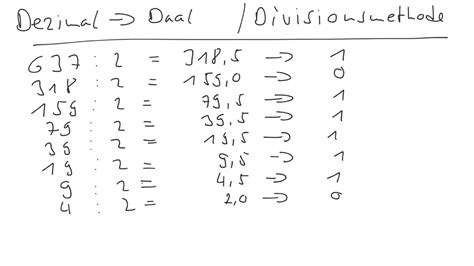 Dezimal -> Daal / Divisionsmethode
637 : 2 = 318,5 -> 1
318 : 2 = 159,0 -> 0
159 : 2 = 79,5 -> 1
79 : 2 = 39,5 -> 1
39 : 2 = 19,5 -> 1
19 : 2 = 9,5 -> 1
9 : 2 = 4,5 -> 1
4 : 2 = 2,0 -> 0